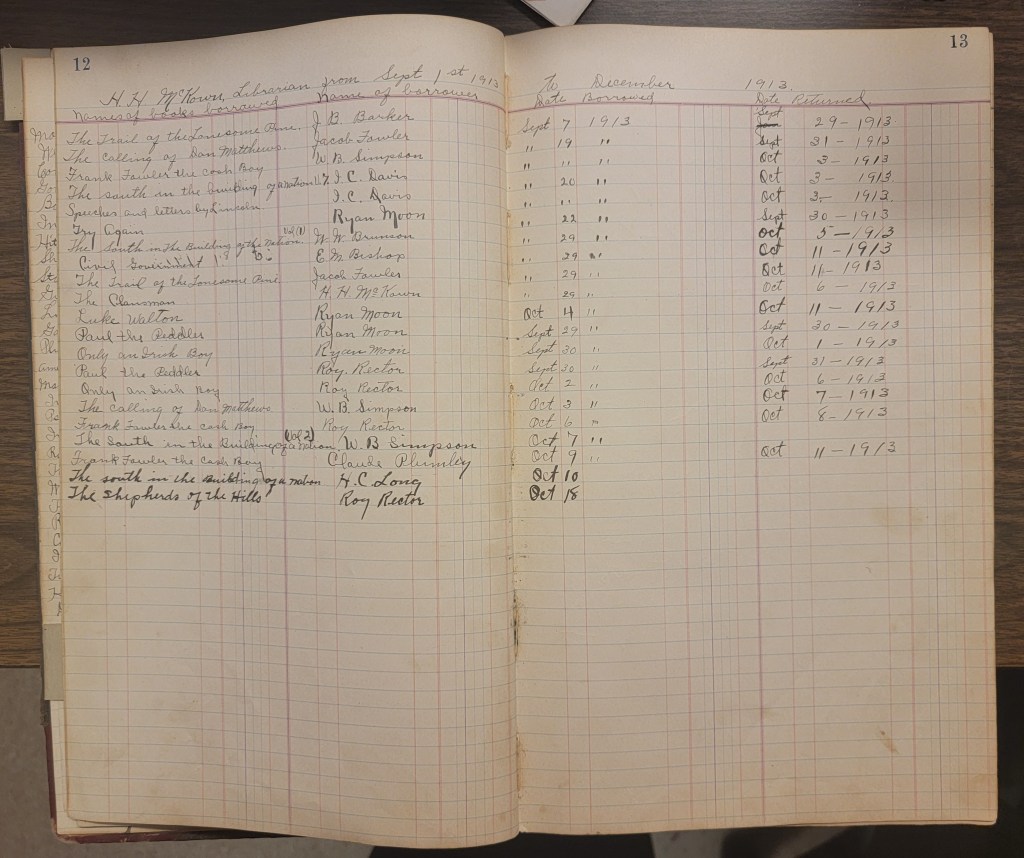 12
H. H. McKown, Librarian from Sept 1st 1913
To December 1913.
13
Names of books borrowed Name of borrower Date Borrowed Date Returned
The Trail of the Lonesome Pine. J. B. Barker Sept 7 1913 Sept 29-1913.
The Calling of Dan Matthews. Jacob Fowler " 19 " Sept 31-1913
Frank Fowler the cash Boy W. B. Simpson " " " Oct 3-1913
The South in the building of a nation I. C. Davis " 20 " Oct 3-1913
Speeches and letters by Lincoln. I. C. Davis " " " Oct 3-1913.
Try Again Ryan Moon " 22 " Sept 30-1913
The South in The Building of the Nation W. W. Brunson " 29 " Oct 5-1913
Civil Government E. M. Bishop " 29 " Oct 11-1913
The Trail of the Lonesome Pine Jacob Fowler " 29 " Oct 11-1913
The Clansman H. H. McKown " 29 " Oct 6-1913
Luke Walton Ryan Moon Oct 4 " Oct 11-1913
Paul the Peddler Ryan Moon Sept 29 " Sept 30-1913
Only an Irish Boy Ryan Moon Sept 30 " Oct 1-1913
Paul the Peddler Roy. Rector Sept 30 " Sept 31-1913
Only an Irish Boy Roy Rector Oct 2 " Oct 6-1913
The Calling of Dan Matthews W. B. Simpson Oct 3 " Oct 7-1913
Frank Fowler the cash Boy Roy Rector Oct 6 " Oct 8-1913
The South in the Building of a Nation (Vol 2) W. B Simpson Oct 7 "
Frank Fowler the Cash Boy Claude Plumley Oct 9 " Oct 11-1913
The south in the Building of a nation H. C. Long Oct 10
The Shepherds of the Hills Roy Rector Oct 18